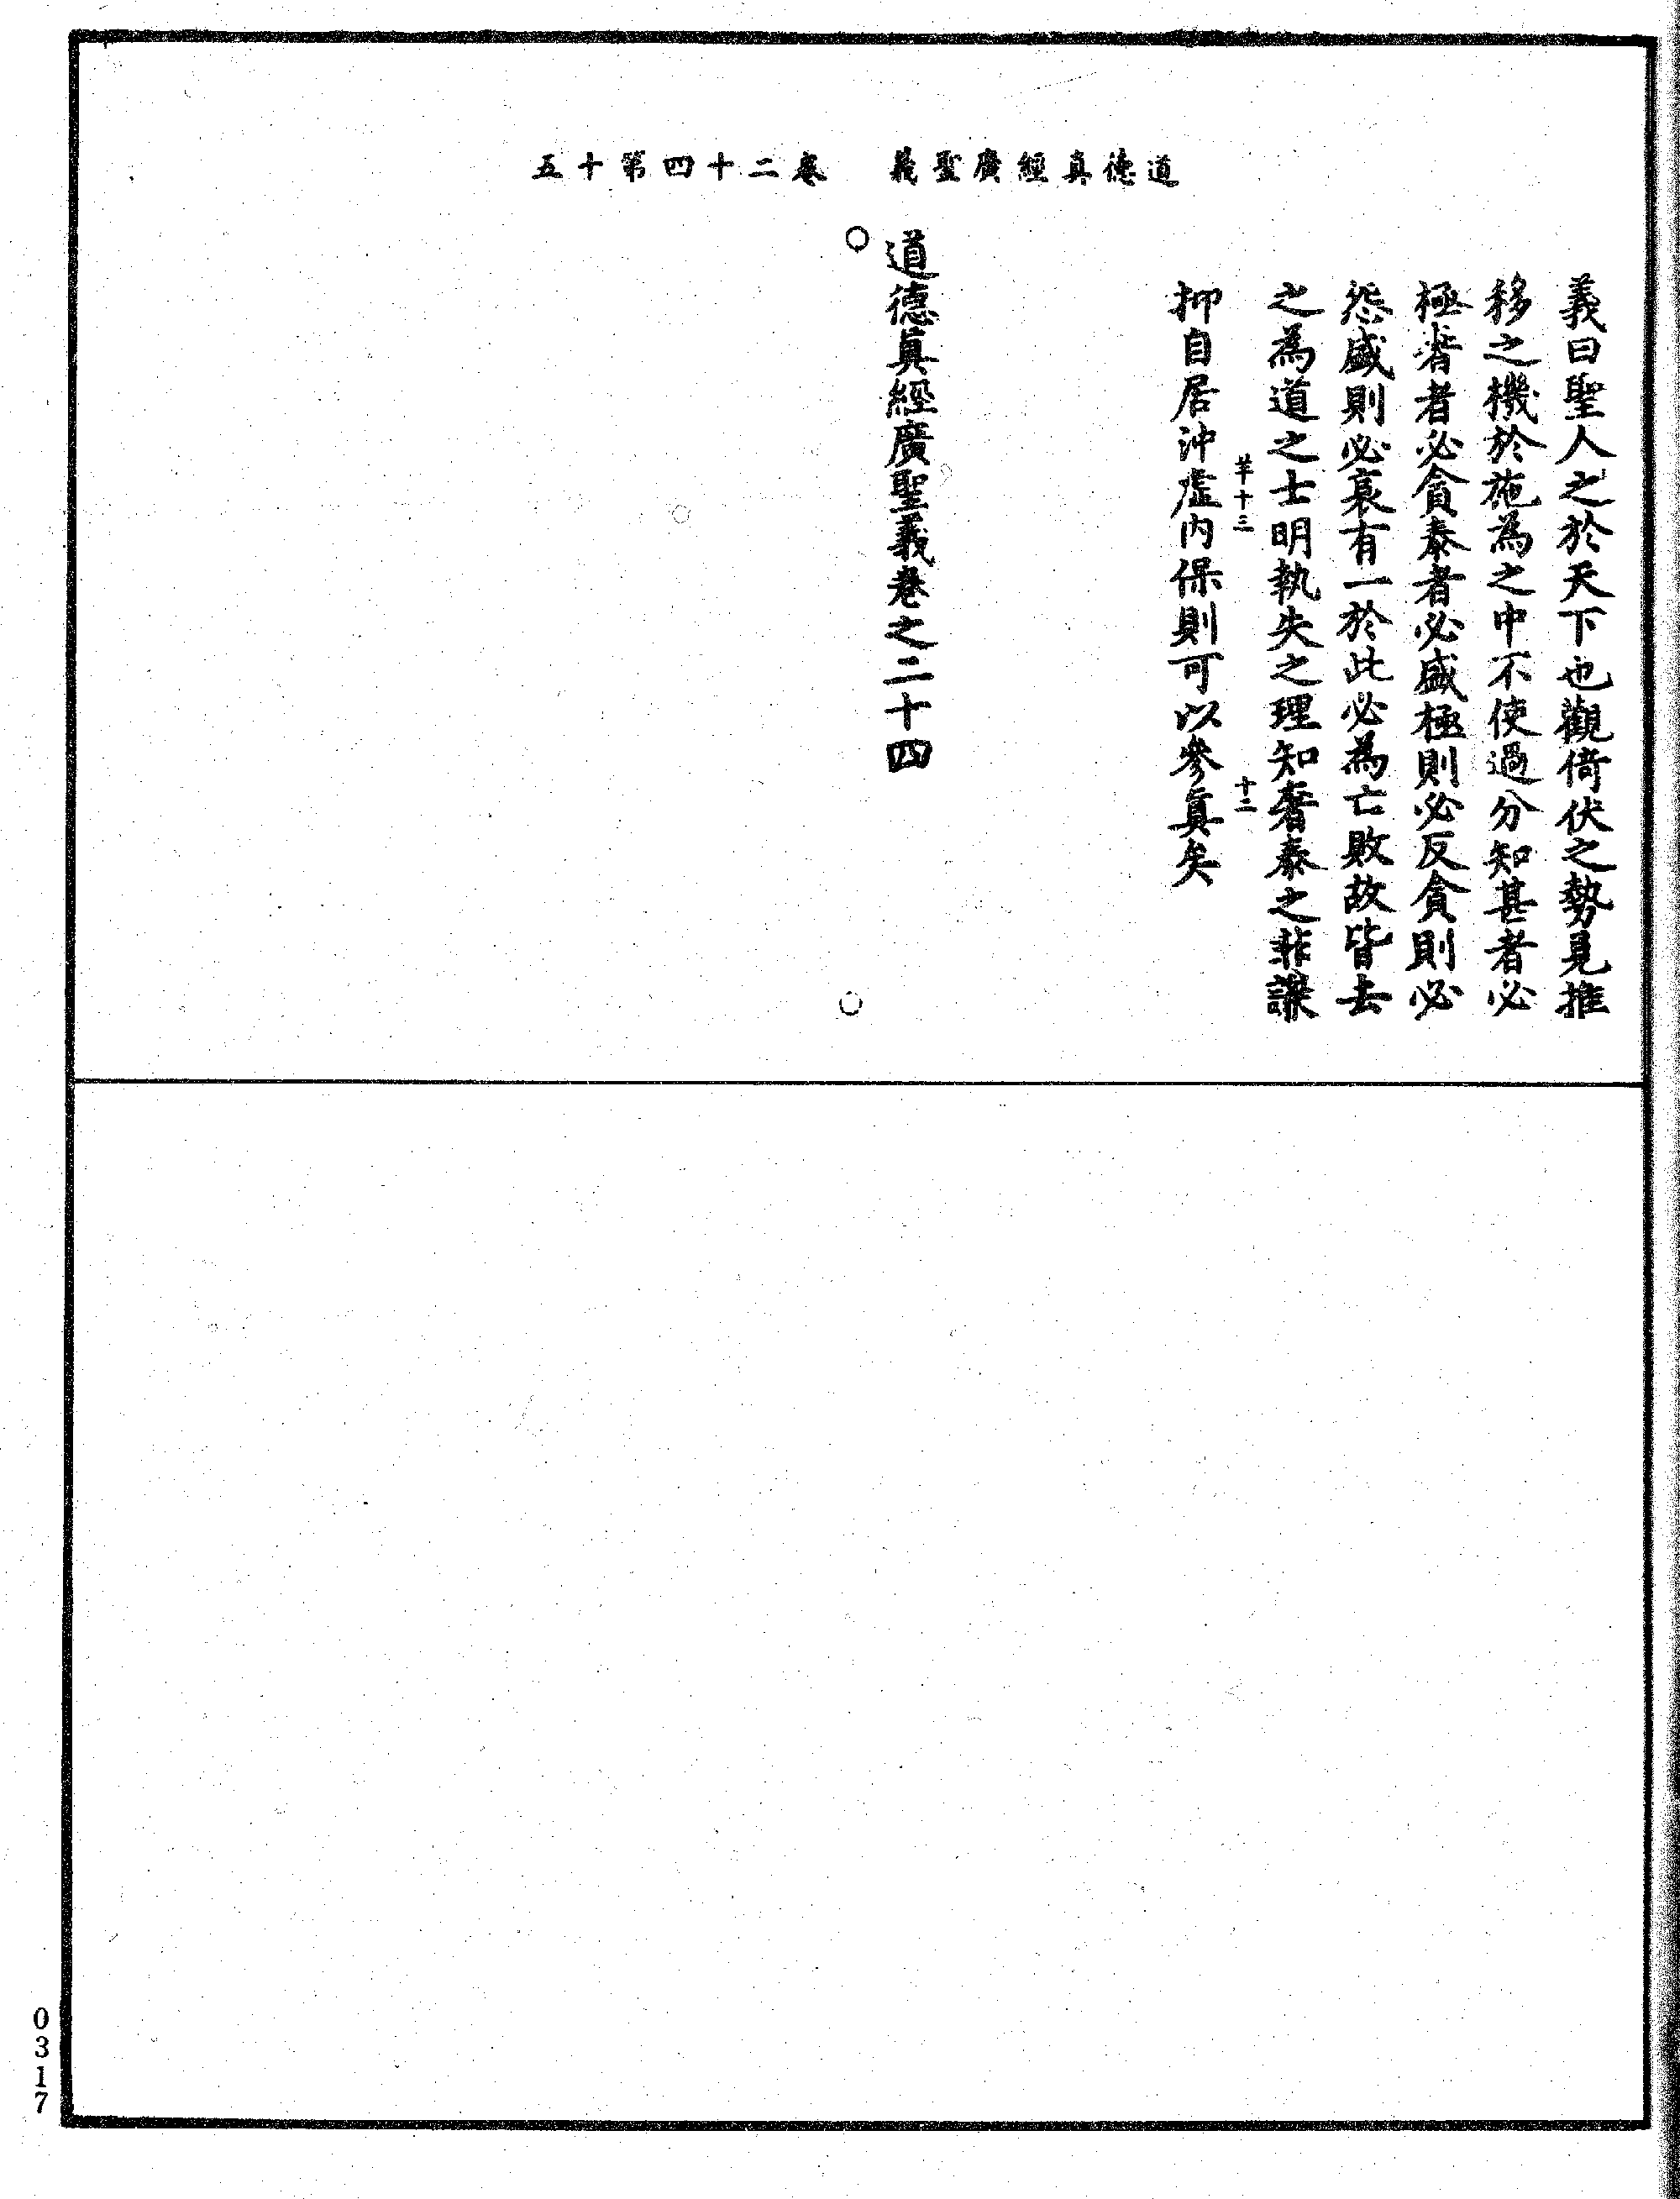 道德真經廣聖義　卷二十四第十五
義曰聖人之於天下也觀倚伏之勢見推
移之機於施為之中不使過分知甚者必
極奢者必貪泰者必盛極則必反貪則必
怨盛則必衰有一於此必為亡敗故皆去
之為道之士明執失之理知奢泰之非謙
羊十三　十二
抑自居沖虛內保則可以參真矣
道德真經廣聖義卷之二十四
0317